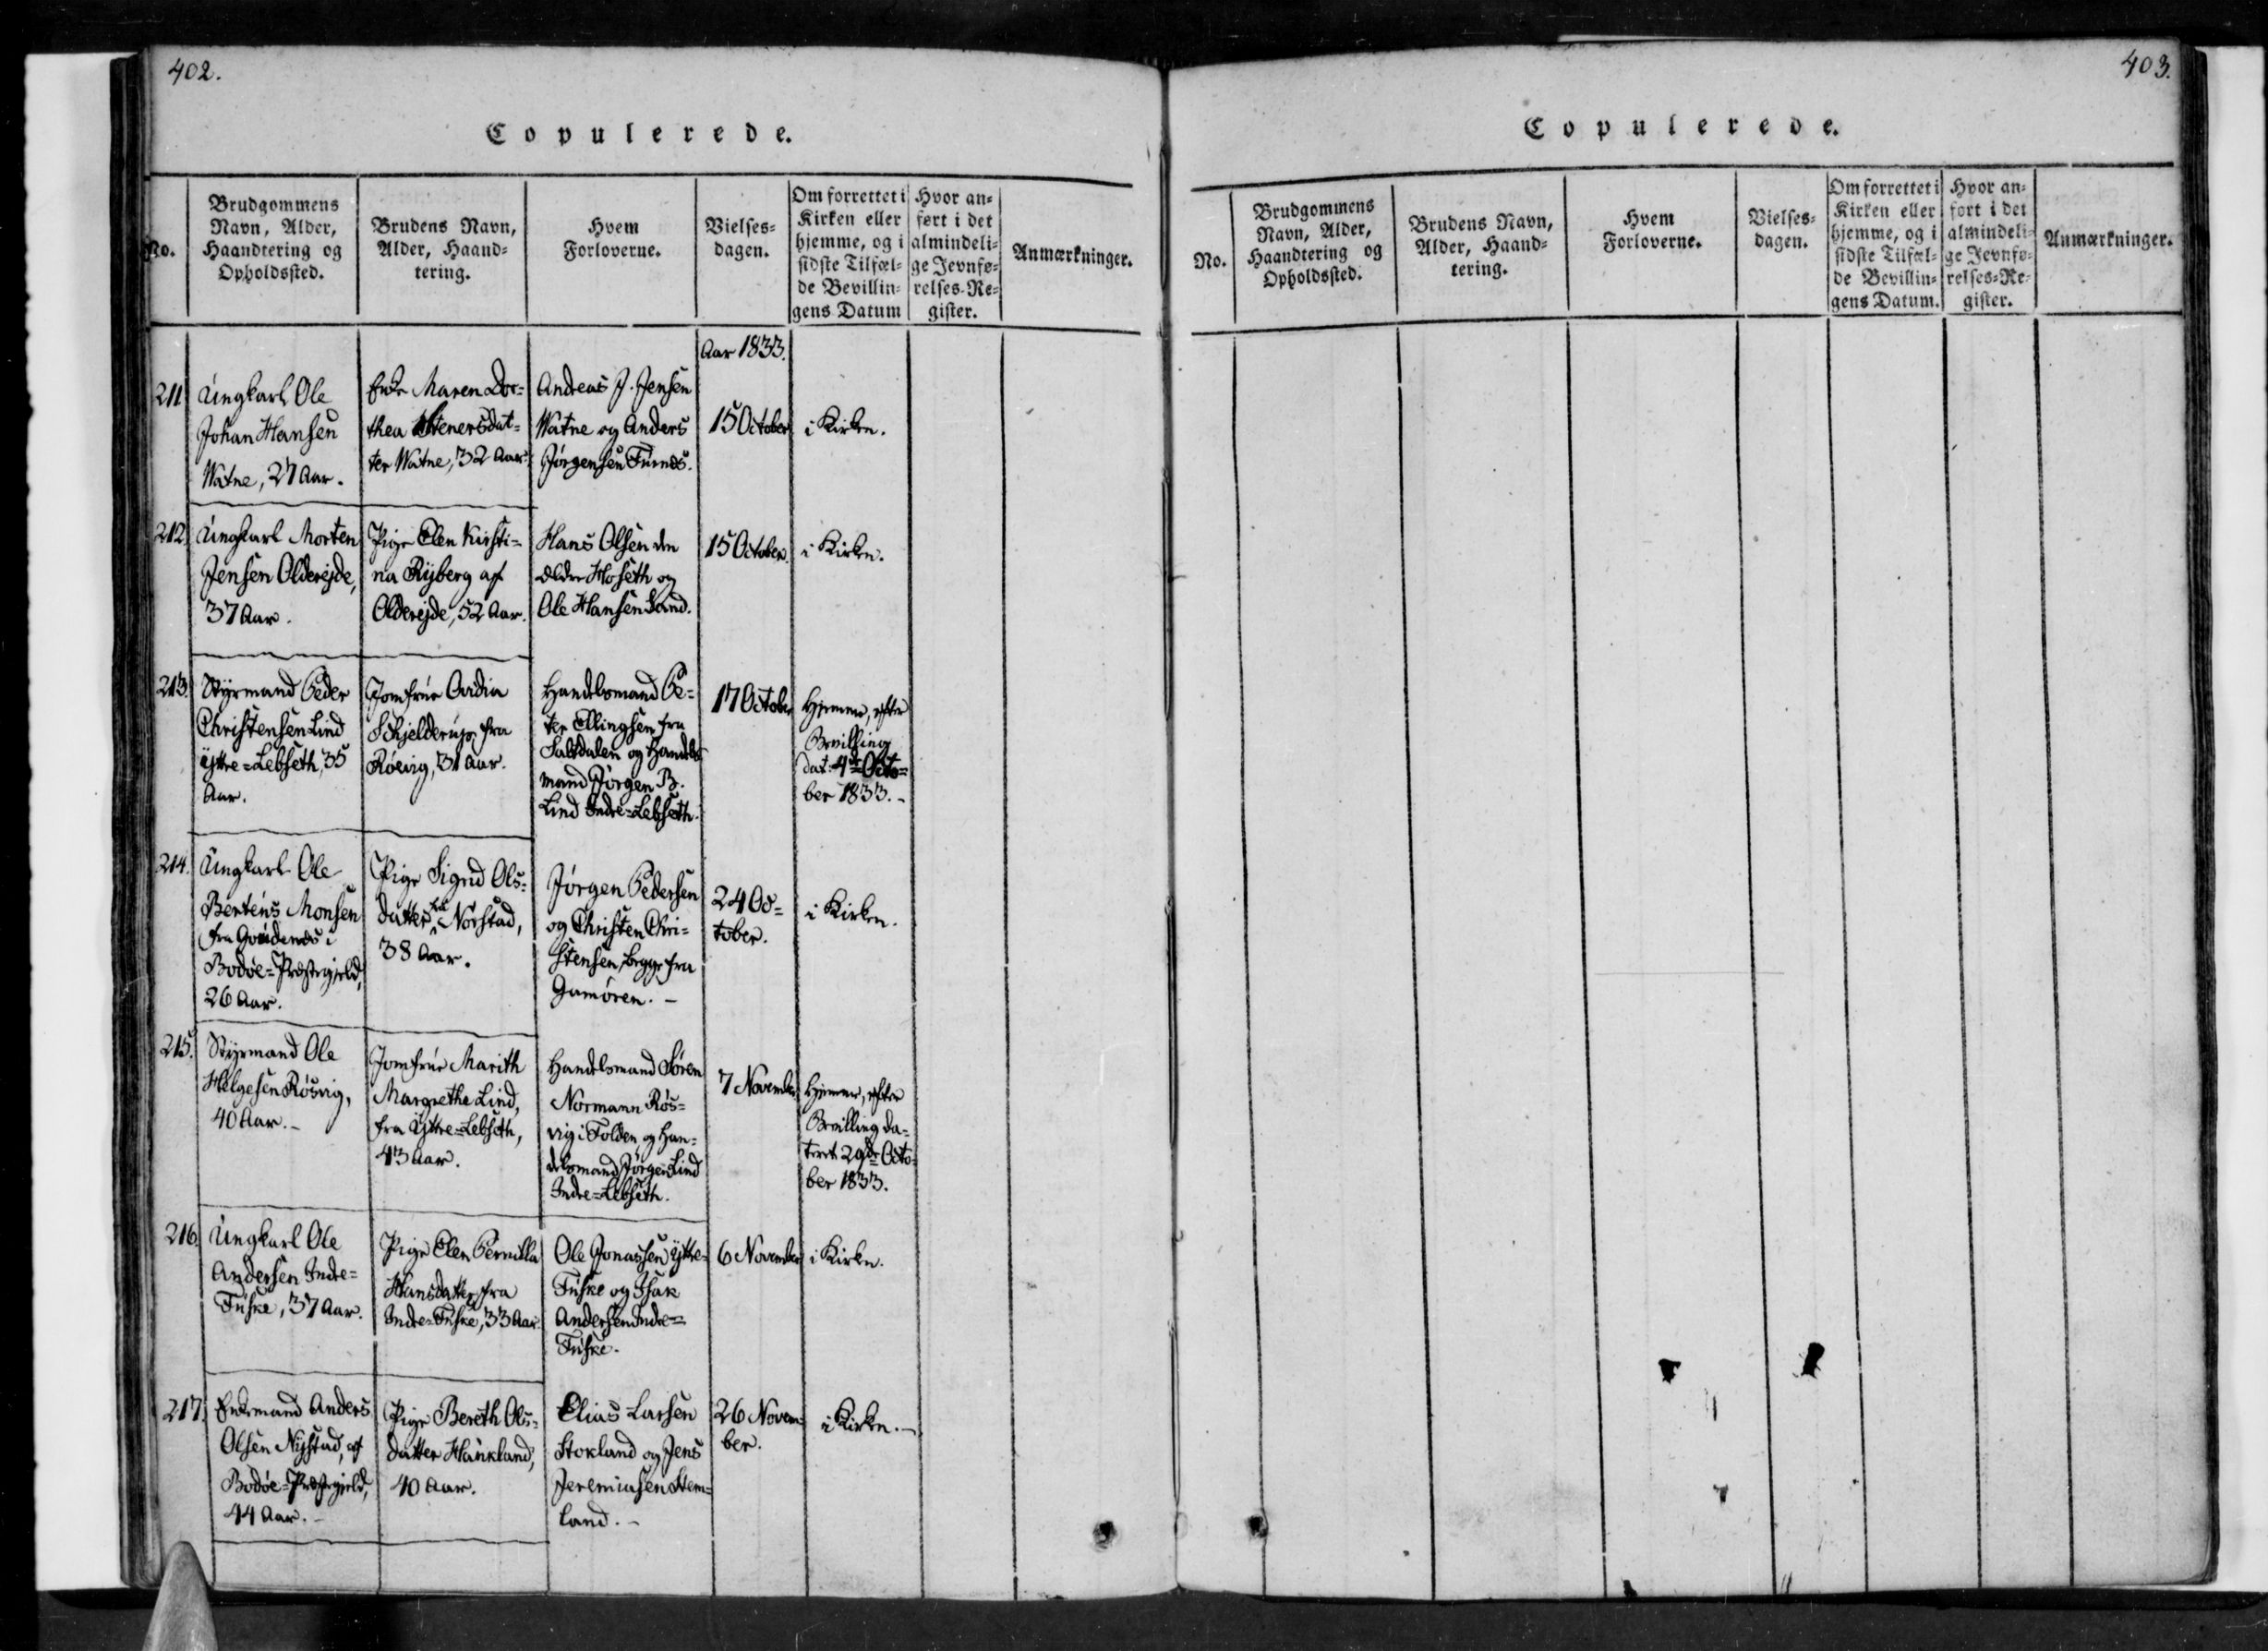 402.
Copulerede.
No.
Brudgommens
Navn, Alder,
Haandtering og
Opholdssted.
Brudens Navn,
Alder, Haand-
tering.
Hvem
Forloverne.
Vielses-
dagen.
Om forrettet i
Kirken eller
hjemme, og i
sidste Tilfæl-
de Bevillin-
gens Datum
Hvor an-
ført i det
almindeli-
ge Jevnfø-
relses-Re-
gister.
Anmærkninger.
Aar 1833.
211
Ungkarl Ole
Johan Hansen
Watne, 27 Aar.
Enke Maren Dor-
thea Stenersdat-
ter Watne, 32 Aar.
Andreas J. Jensen
Watne og Anders
Jørgensen Furnes.
15 October
i Kirken.
212.
Ungkarl Morten
Jensen Olderejde,
37 Aar.
Pige Elen Kirsti-
na Ryberg af
Olderejde, 52 Aar.
Hans Olsen den
ældre Hoseth og
Ole Hansen Sand.
15 October.
i Kirken.
213.
Styrmand Peder
Christensen Lind
Yttre-Lebseth, 35
Aar.
Jomfrue Ovidia
Schjelderup, fra
Røsvig, 31 Aar.
Handelsmand Pe-
ter Ellingsen fra
Saltdalen og Handels
mand Jørgen B.
Lind Indre-Lebseth.
17 October
Hjemme, efter
Bevilling
dat. 4de Octo-
ber 1833.-
214.
Ungkarl Ole
Bertéus Monsen
fra
i
Bodøe-Præstegjeld,
26 Aar.
Pige Sigrid Ols-
datter fra Norstad,
38 Aar.
Jørgen Pedersen
og Christen Chri-
stensen, begge fra
Gamøren. -
24 Oc-
tober.
i Kirken.
215.
Styrmand Ole
Helgesen Røsvig,
40 Aar.-
Jomfrue Marith
Margrethe Lind,
fra Yttre-Lebseth,
43 Aar.
Handelsmand Søren
Normann Røs-
vig i Folden og Han-
delsmand Jørgen Lind
Indre-Lebseth.
7 November
Hjemme, efter
Bevilling da-
teret 29de Octo-
ber 1833.
216.
Ungkarl Ole
Andersen Indre-
Fuske, 37 Aar.
Pige Elen Pernilla
Hansdatter fra
Indre-Fuske, 33 Aar.
Ole Jonassen Yttre-
Fuske og Isak
Andersen Indre-
Fuske.
6 November
i Kirken.
217.
Enkemand Anders
Olsen Nystad, af
Bodøe-Præstegjeld,
44 Aar. -
Pige Bereth Ols-
datter Haukland,
40 Aar.
Elias Larsen
Stokland og Jens
Jeremiasen Stem-
land. -
26 Novem-
ber.
i Kirken. -
403.
Copulerede.
No.
Brudgommens
Navn, Alder,
Haandtering og
Opholdssted.
Brudens Navn,
Alder, Haand-
tering.
Hvem
Forloverne.
Vielses-
dagen.
Om forrettet i
Kirken eller
hjemme, og i
sidste Tilfæl-
de Bevillin-
gens Datum.
Hvor an-
ført i det
almindeli-
ge Jevnfø-
relses-Re-
gister.
Anmærkninger.